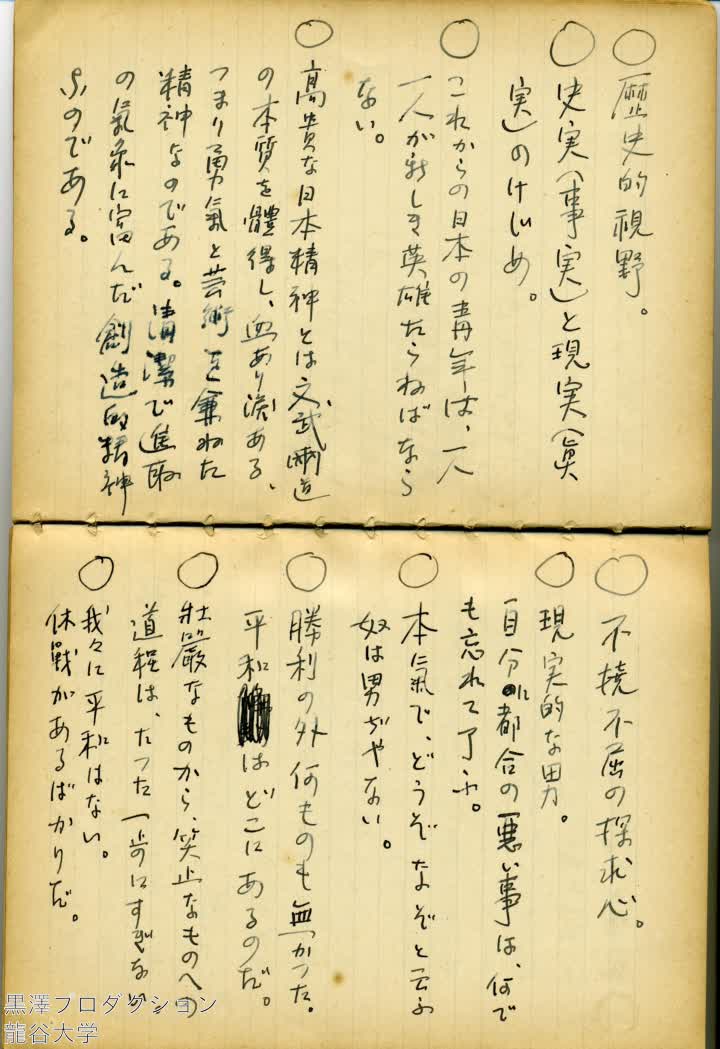 ○ 歴史的視野。
○ 史実(事実)と現実(眞
実)のけじめ。
○ これからの日本の青年は、一人
一人が新しき英雄たらねばなら
ない。
○ 高貴な日本精神とは文武両道
の本質を體得し、血あり涙ある、
つまり勇氣と芸術を兼ねた
精神なのである。清潔で進取
の氣象に富んだ創造的精神
ふのである。
○ 不撓不屈の探求心。
○ 現実的な男。
自分に都合の悪い事は、何で
も忘れて了ふ。
○ 本氣で、どうぞなぞと云ふ
奴は男ぢやない。
○ 勝利の外何ものも無かつた。
平和はどこにあるのだ。
○ 壮嚴なものから、笑止なものへの
道程は、たつた一歩にすぎない
○ 我々に平和はない。
休戦があるばかりだ。
黒澤プロダクション
龍谷大学